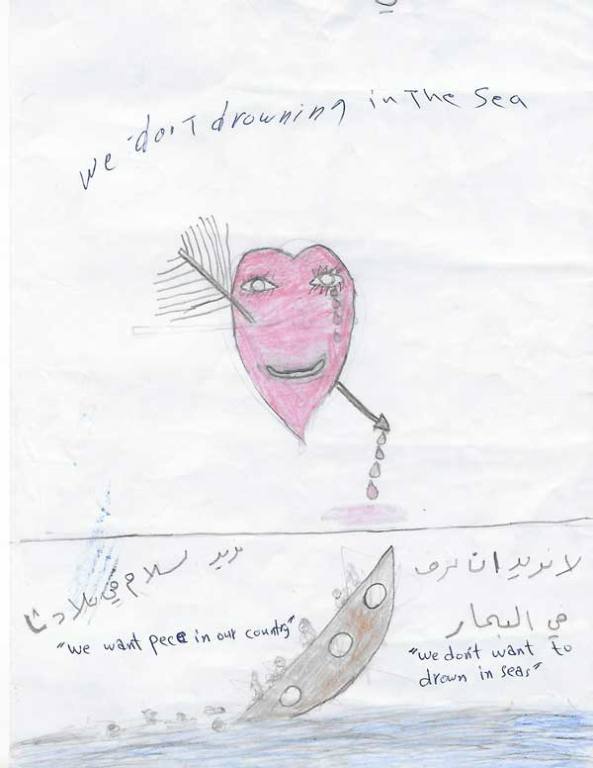 we don't drowning in The Sea
نريد السلام في بلادنا
"we want pece in our country"
لا نريد ان
في البحار
"we don't want to
drown in seas"